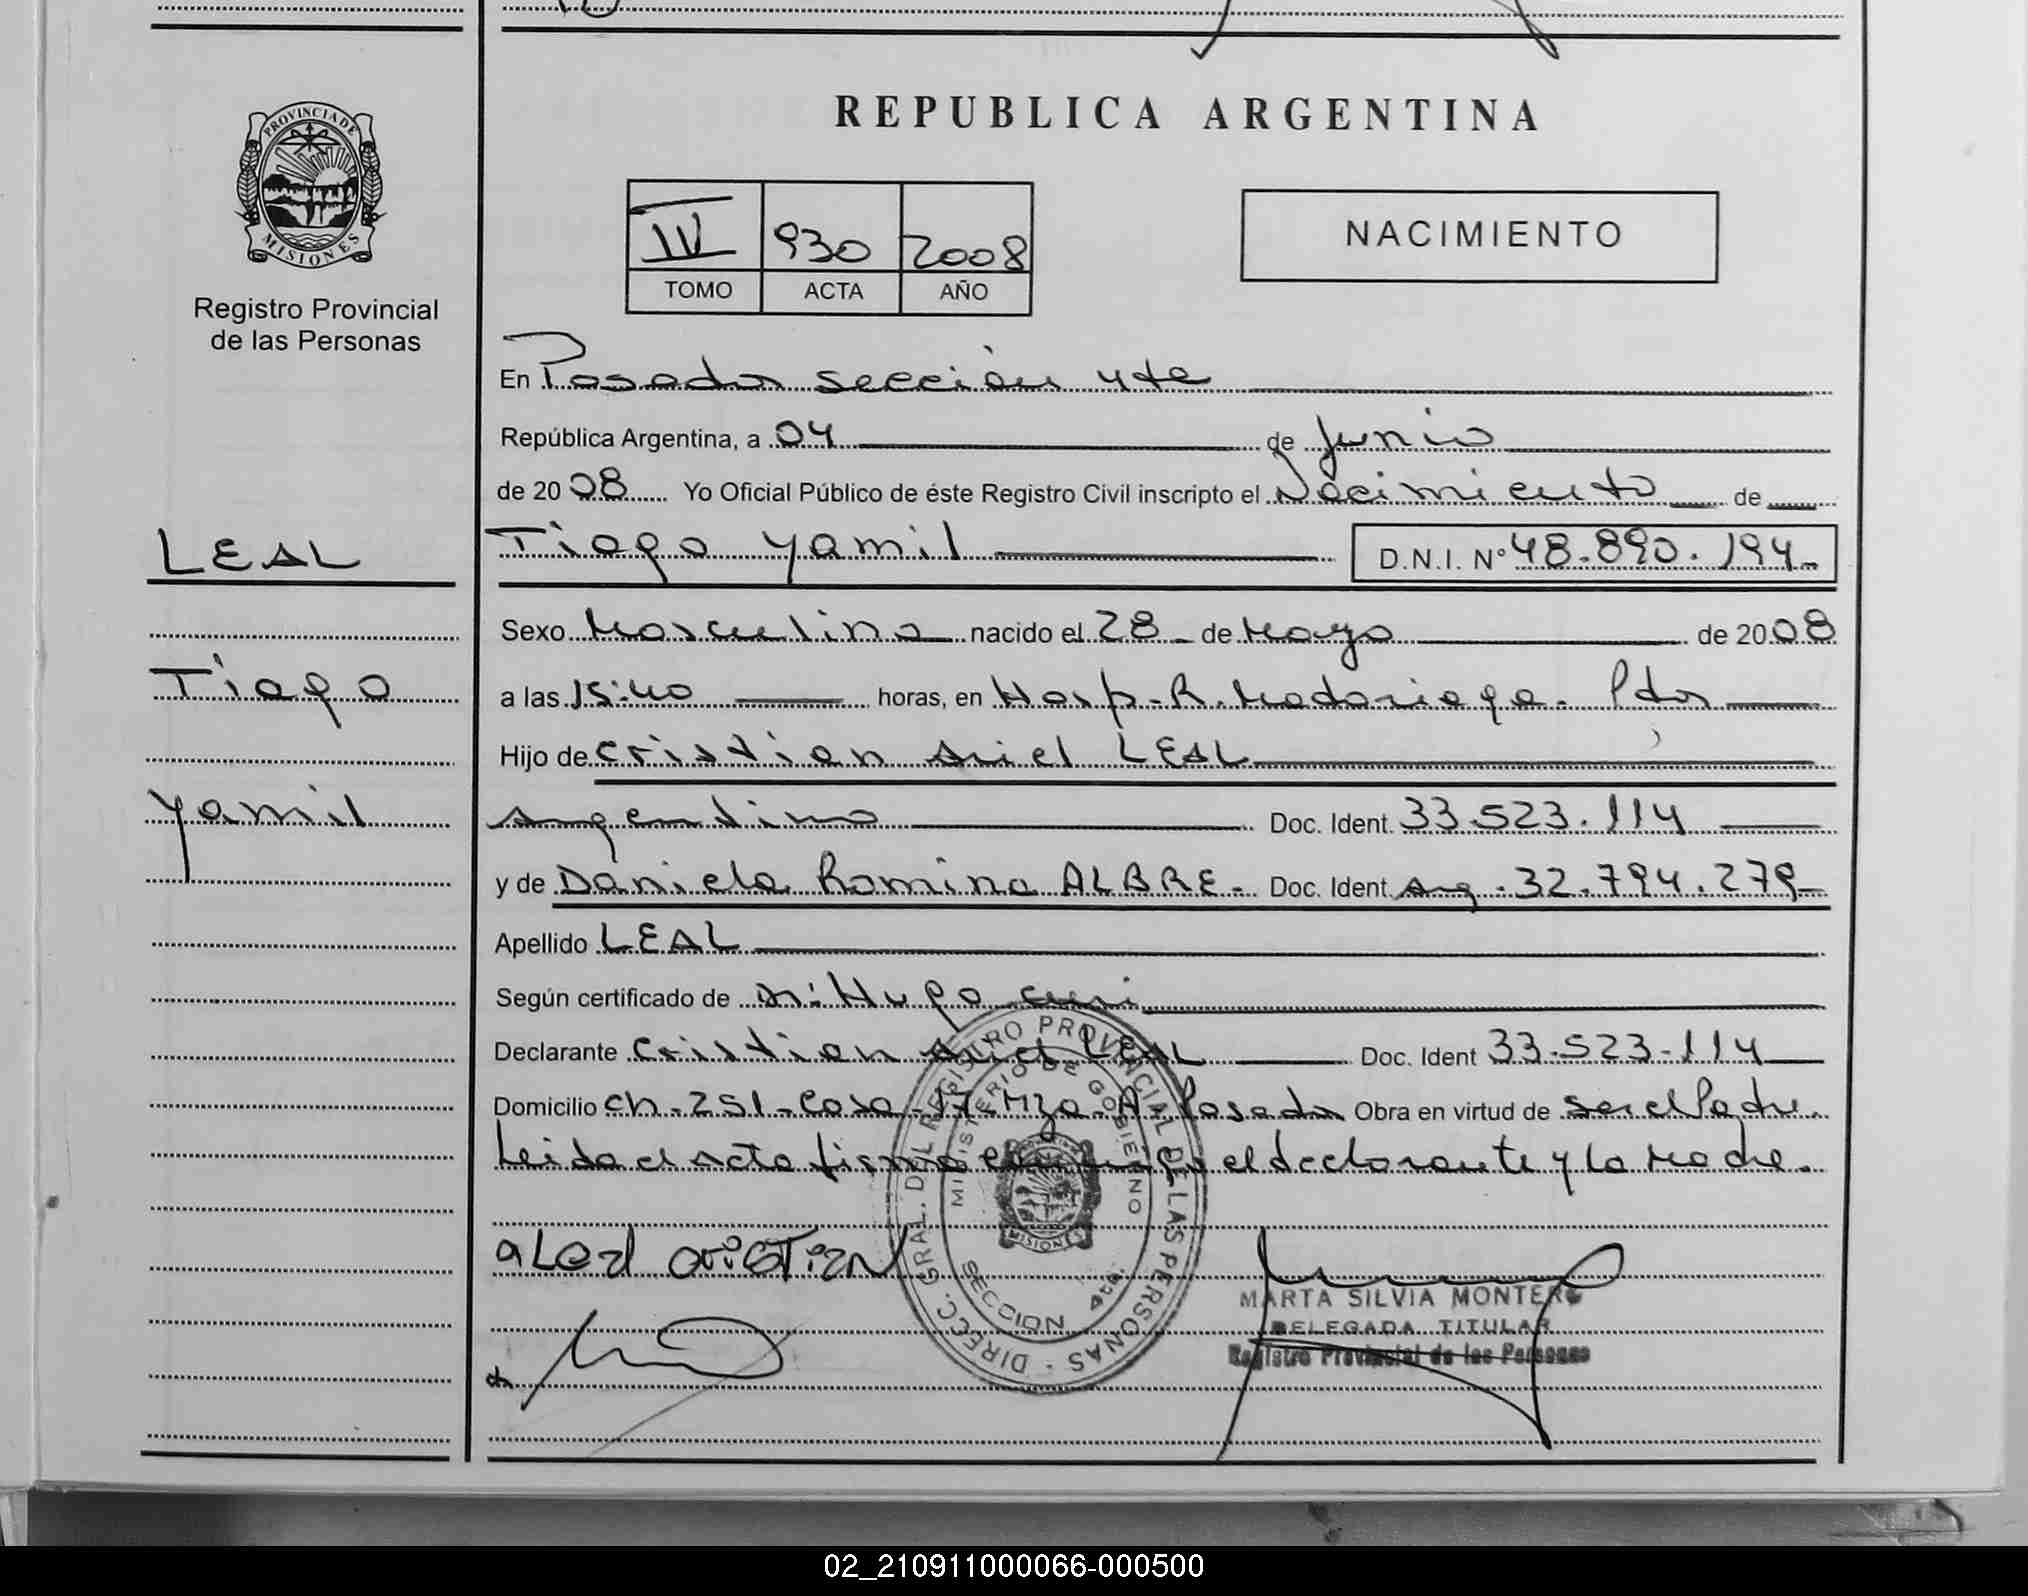 REPUBLICA ARGENTINA
PROVINCIA DE
MISIONES
Registro Provincial
de las Personas
IV 930 2008
TOMO ACTA AÑO
NACIMIENTO
En Posadas sección 4ta
República Argentina, a 04 de Junio
de 2008 Yo Oficial Público de éste Registro Civil inscripto el Nacimiento de
LEAL
Tiago Yamil D.N.I. Nº 48.890.194
Sexo Masculino nacido el 28 de Mayo de 2008
Tiago
a las 15:40 horas, en Hosp. R. Madariaga. Pdas
Hijo de Cristian Ariel LEAL
Yamil
Argentino Doc. Ident. 33.523.114
y de Daniela Romina ALBRE. Doc. Ident. Arg. 32.794.279
Apellido LEAL
Según certificado de Dr: Hugo
Declarante Cristian Ariel LEAL Doc. Ident 33.523.114
Domicilio Ch. 251. Casa 17 Mza. A Posadas Obra en virtud de ser el Padre.
Leida el acta firma el declarante y la Madre.
DIRECC. GRAL. DEL REGISTRO PROVINCIAL DE LAS PERSONAS
MINISTERIO DE GOBIERNO
MISIONES
SECCION 4ta.
MARTA SILVIA MONTERO
DELEGADA TITULAR
Registro Provincial de las Personas
02_210911000066-000500